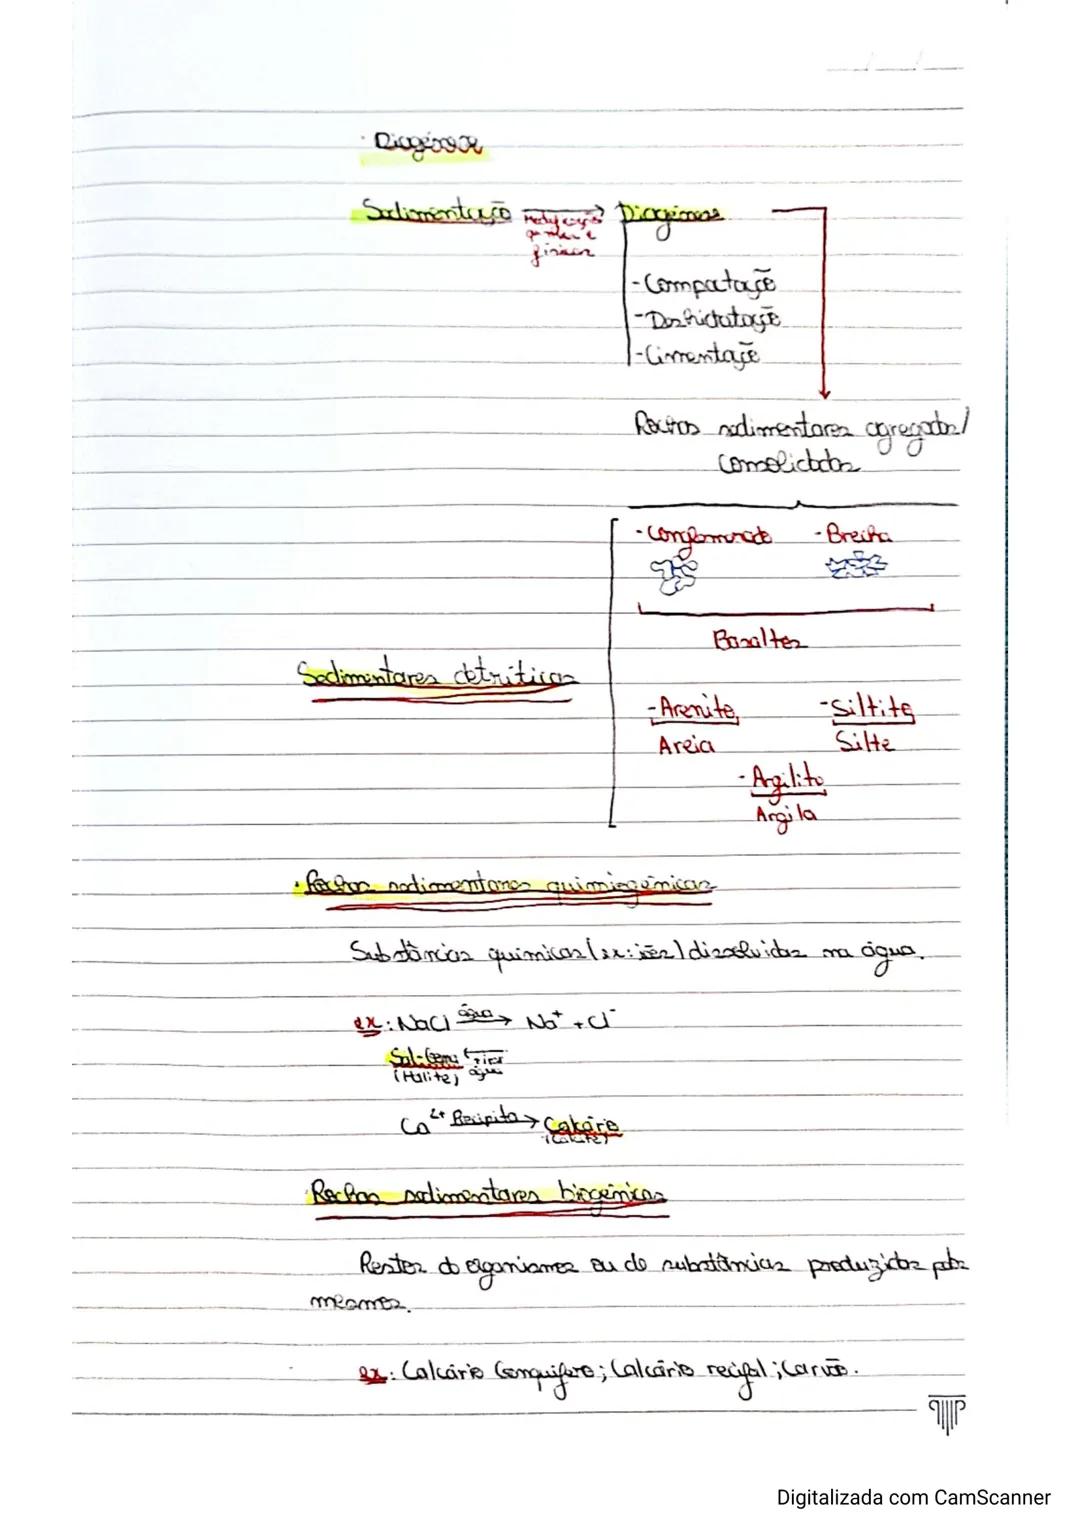 · Diagénese
Sedimentação → Diagénese
Modificação
química e
física
- Compactação
- Deshidratação
- Cimentação
Rochas sedimentares agregadas/
consolidadas
- Conglomerado - Brecha
Basaltes
Sedimentares detríticas
- Arenito - Siltito
Areia Silte
- Argilito
Argila
· Rochas sedimentares quimiogénicas
Substâncias químicas (ex: iões) dissolvidas na água.
ex: NaCl água→ Na⁺ + Cl⁻
Sal-Gema
(Halite) água
Ca²⁺ Precipita→ Calcário
(Calcite)
· Rochas sedimentares biogénicas
Restos de organismos ou de substâncias produzidas pelos
mesmos.
ex: Calcário Conquífero; Calcário recifal; Carvão.
Digitalizada com CamScanner